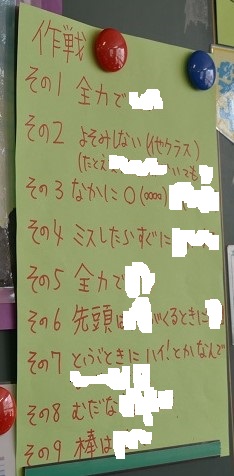 作戦
その1 全力で
その2 よそみしない(他クラス)
(たとえ いても)
その3 なかに〇(oooo)
その4 ミスしたらすぐに
その5 全力で
その6 先頭は くるときに
その7 とぶときにハイ!とかなんで
その8 むだな
その9 棒は